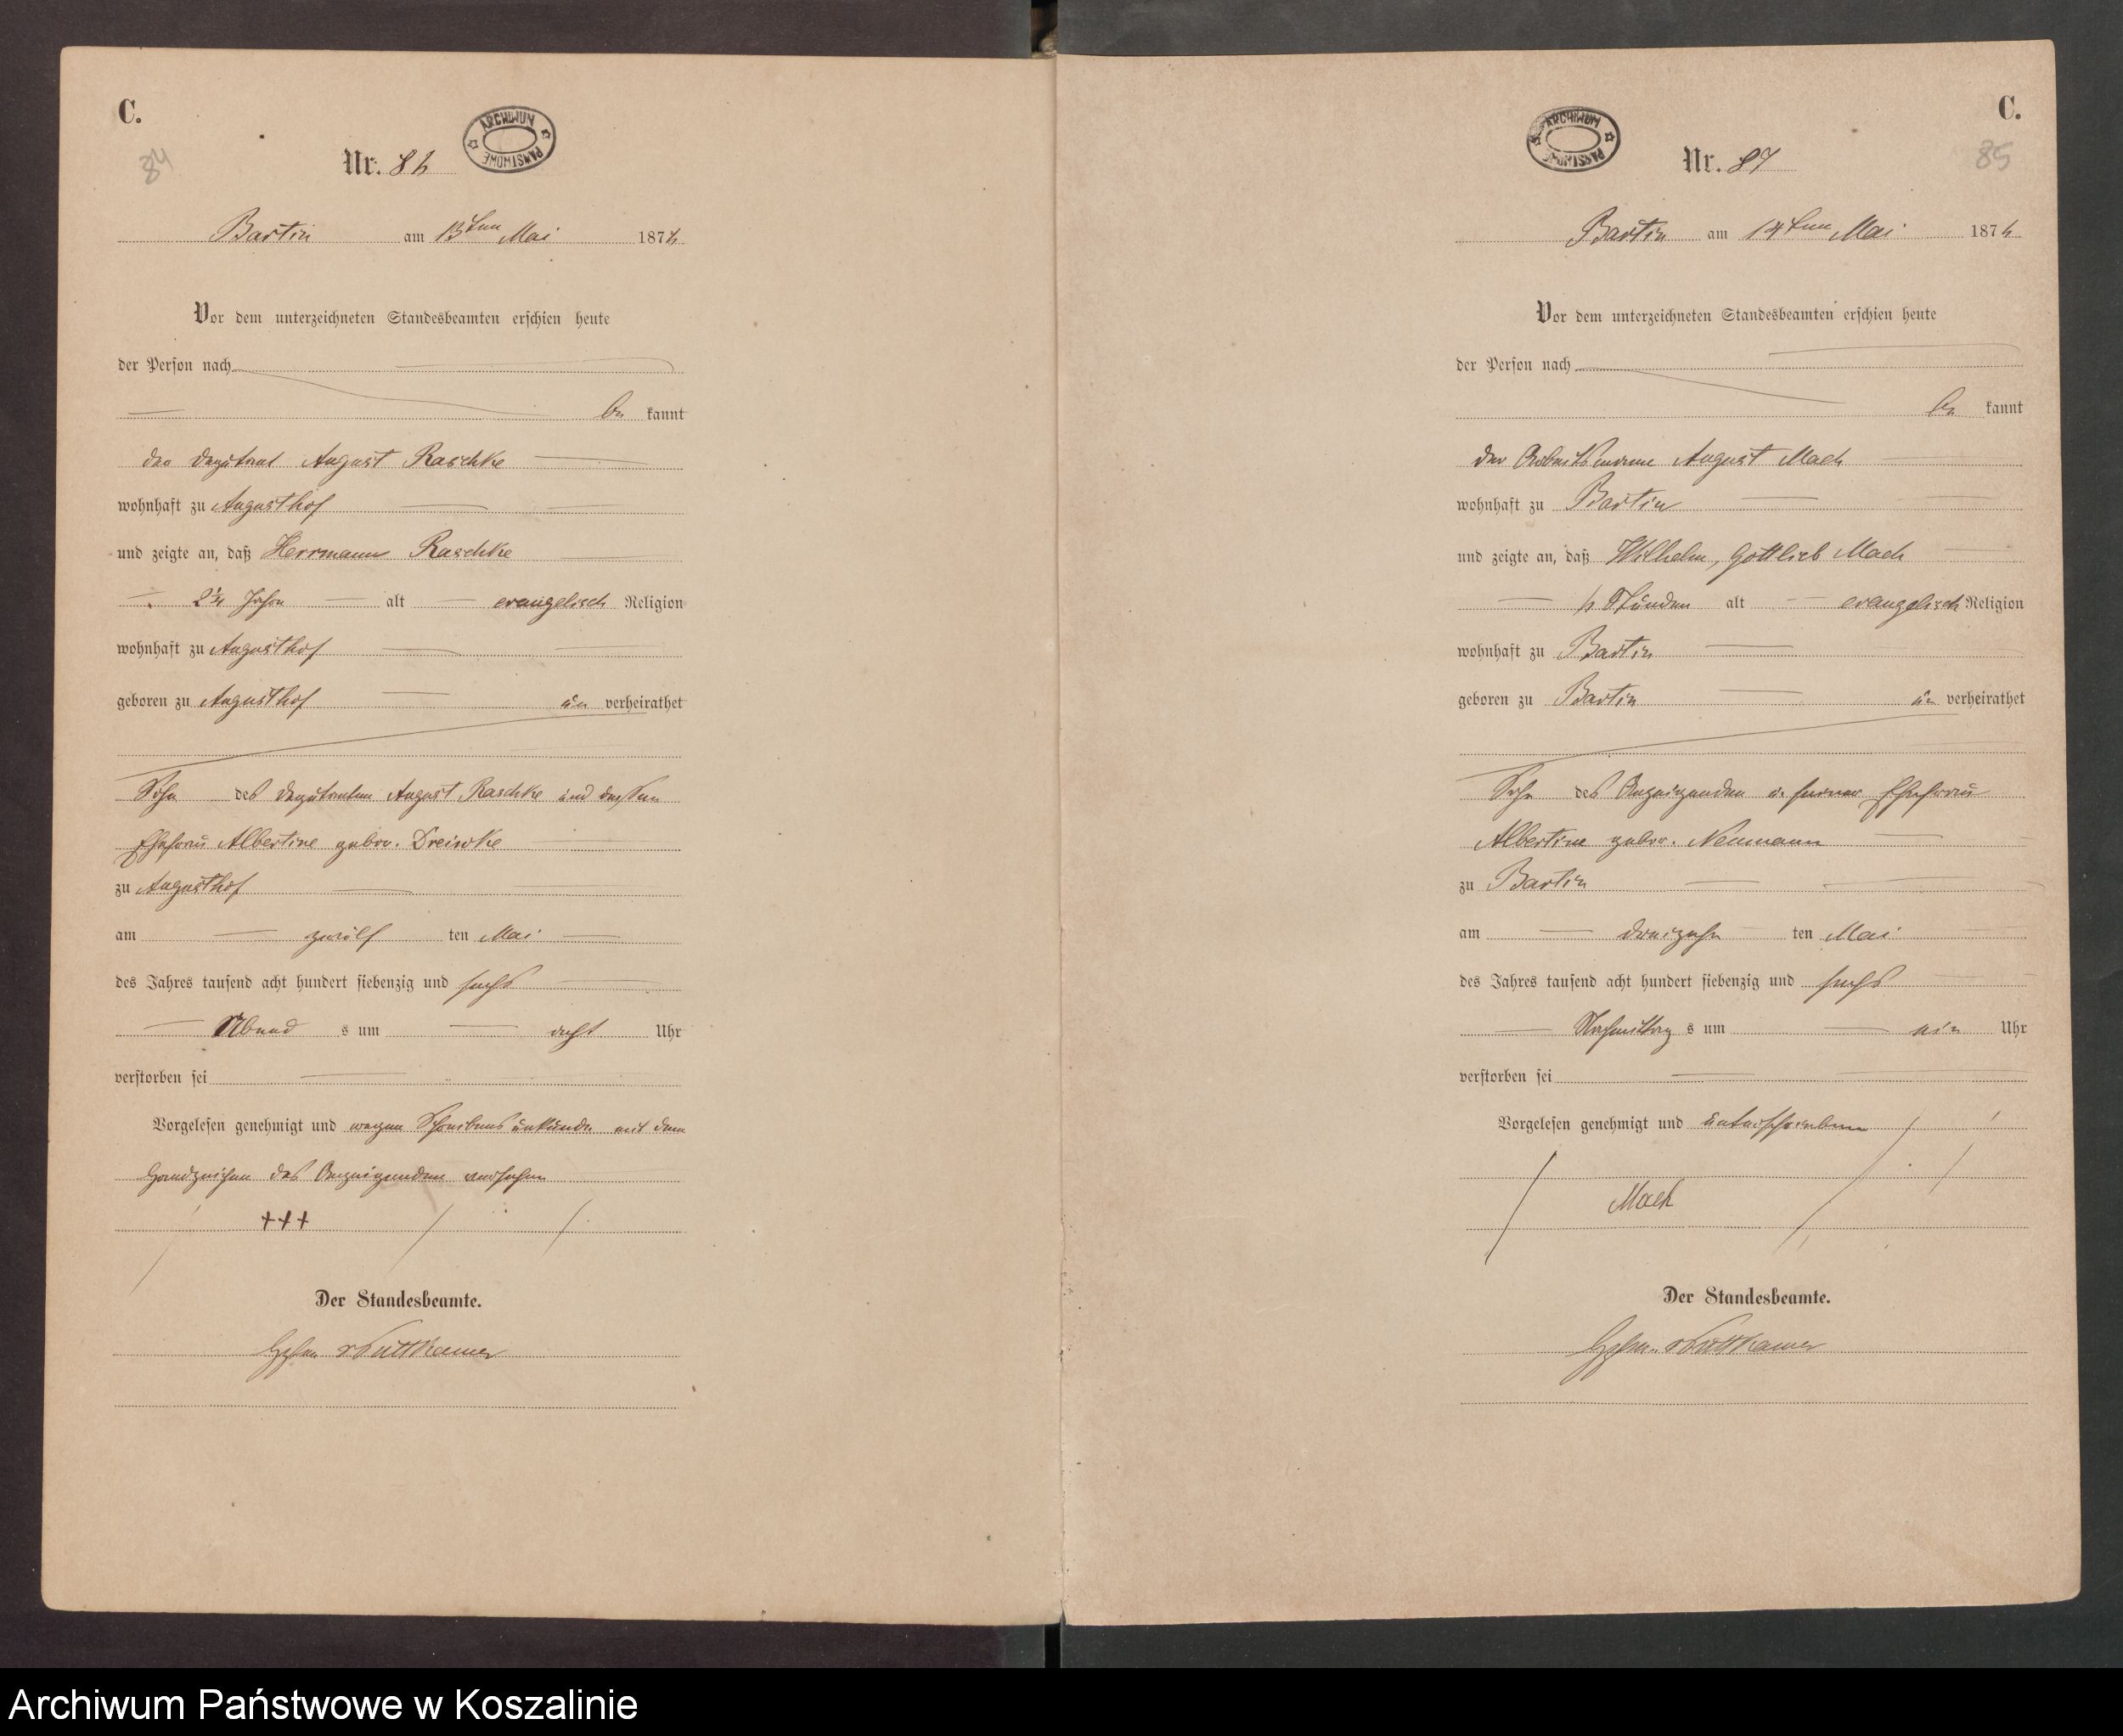 C.
84
Nr. 86
ARCHIWUM PAŃSTWOWE
Bartin am 13ten Mai 1876
Vor dem unterzeichneten Standesbeamten erschien heute
der Person nach
be kannt
der Deputant August Raschke
wohnhaft zu Augusthof
und zeigte an, daß Herrmann Raschke
2¼ Jahre alt evangelisch Religion
wohnhaft zu Augusthof
geboren zu Augusthof un verheirathet
Sohn des Deputanten August Raschke und dessen
Ehefrau Albertine gebor. Dreiwke
zu Augusthof
am zwölf ten Mai
des Jahres tausend acht hundert siebenzig und sechs
Abend s um acht Uhr
verstorben sei
Vorgelesen genehmigt und wegen Schreibensunkunde mit dem
Handzeichen des Anzeigenden versehen
+++
Der Standesbeamte.
v Puttkamer
C.
85
Nr. 87
ARCHIWUM PAŃSTWOWE
Bartin am 14ten Mai 1876
Vor dem unterzeichneten Standesbeamten erschien heute
der Person nach
be kannt
der Arbeitsmann August Mach
wohnhaft zu Bartin
und zeigte an, daß Wilhelm, Gottlieb Mach
6 Stunden alt evangelisch Religion
wohnhaft zu Bartin
geboren zu Bartin un verheirathet
Sohn des Anzeigenden u. seiner Ehefrau
Albertine gebor. Neumann
zu Bartin
am dreizehn ten Mai
des Jahres tausend acht hundert siebenzig und sechs
Nachmittag s um ein Uhr
verstorben sei
Vorgelesen genehmigt und unterschrieben
Mach
Der Standesbeamte.
v Puttkamer
Archiwum Państwowe w Koszalinie